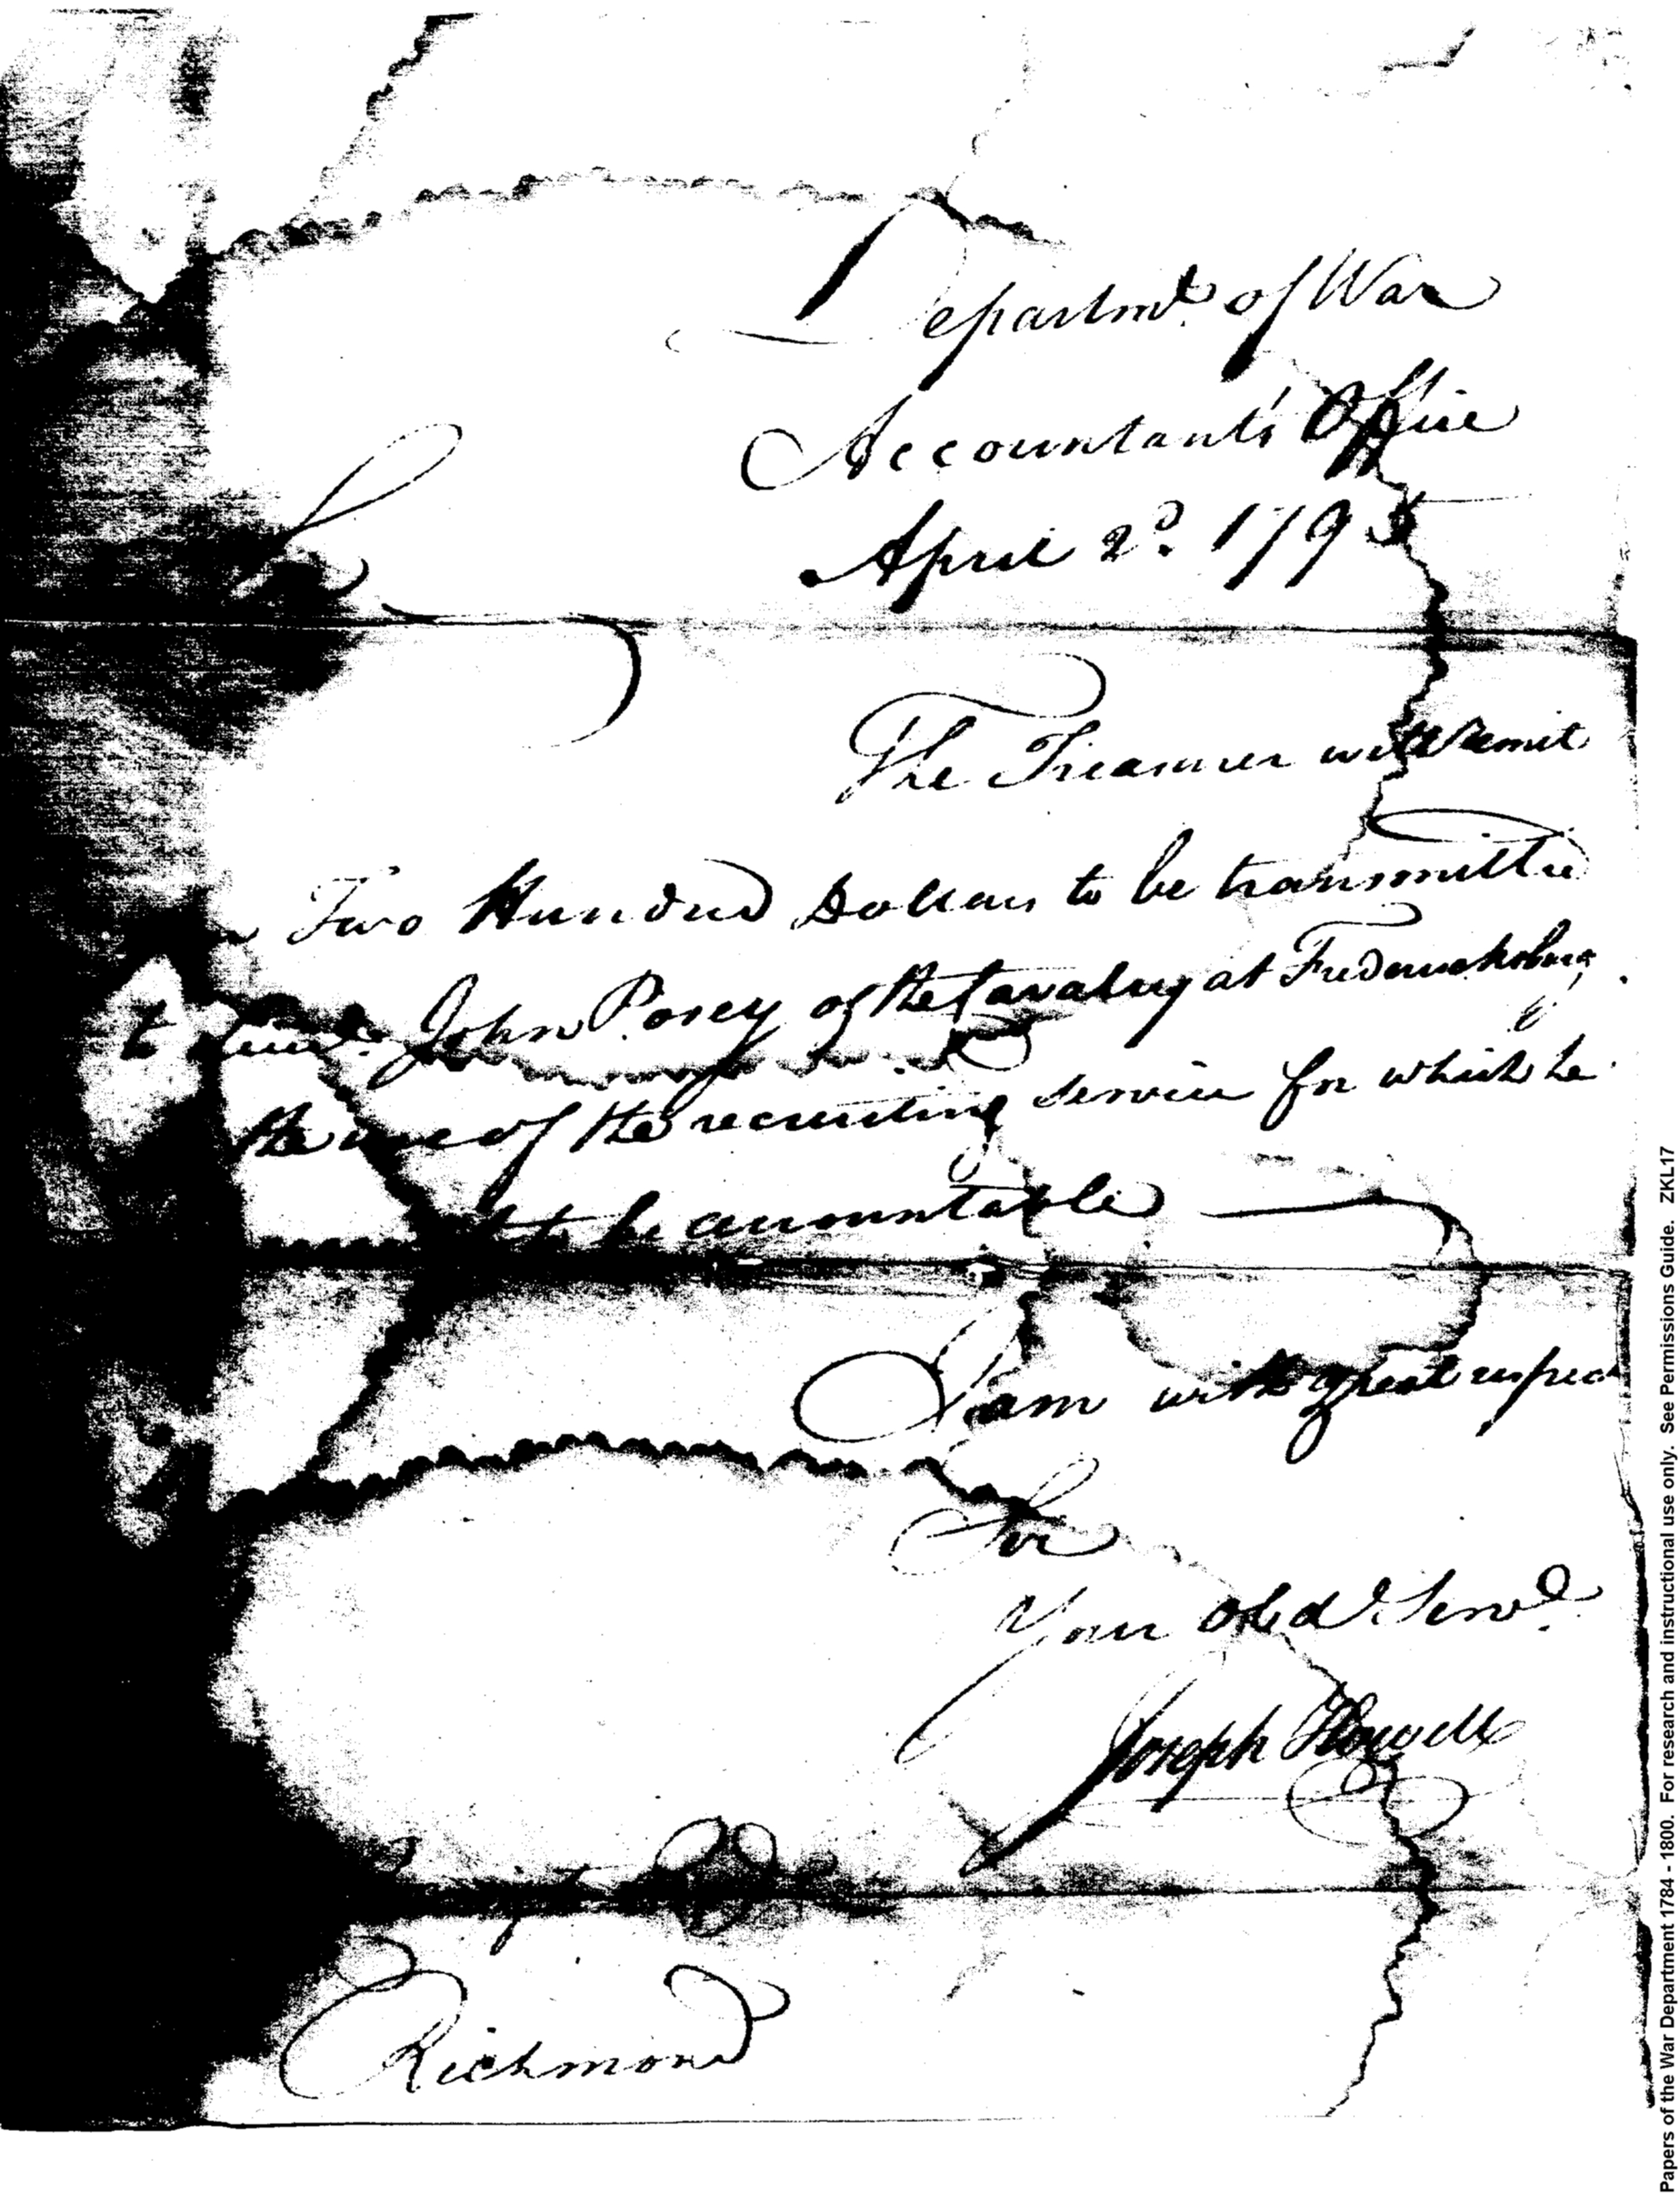 Departmt. of War
Accountant's Office
April 2d. 1793
Sir
The Treasurer will remit
Two Hundred Dollars to be transmitted
to Lieut. John Posey of the Cavalry at Fredericksburg
the use of the recruiting service for which he
to be accountable
I am with great respect
Sir
Your Obedt. Servt.
Joseph Howell
Richmond
Papers of the War Department 1784 - 1800. For research and instructional use only. See Permissions Guide. ZKL17